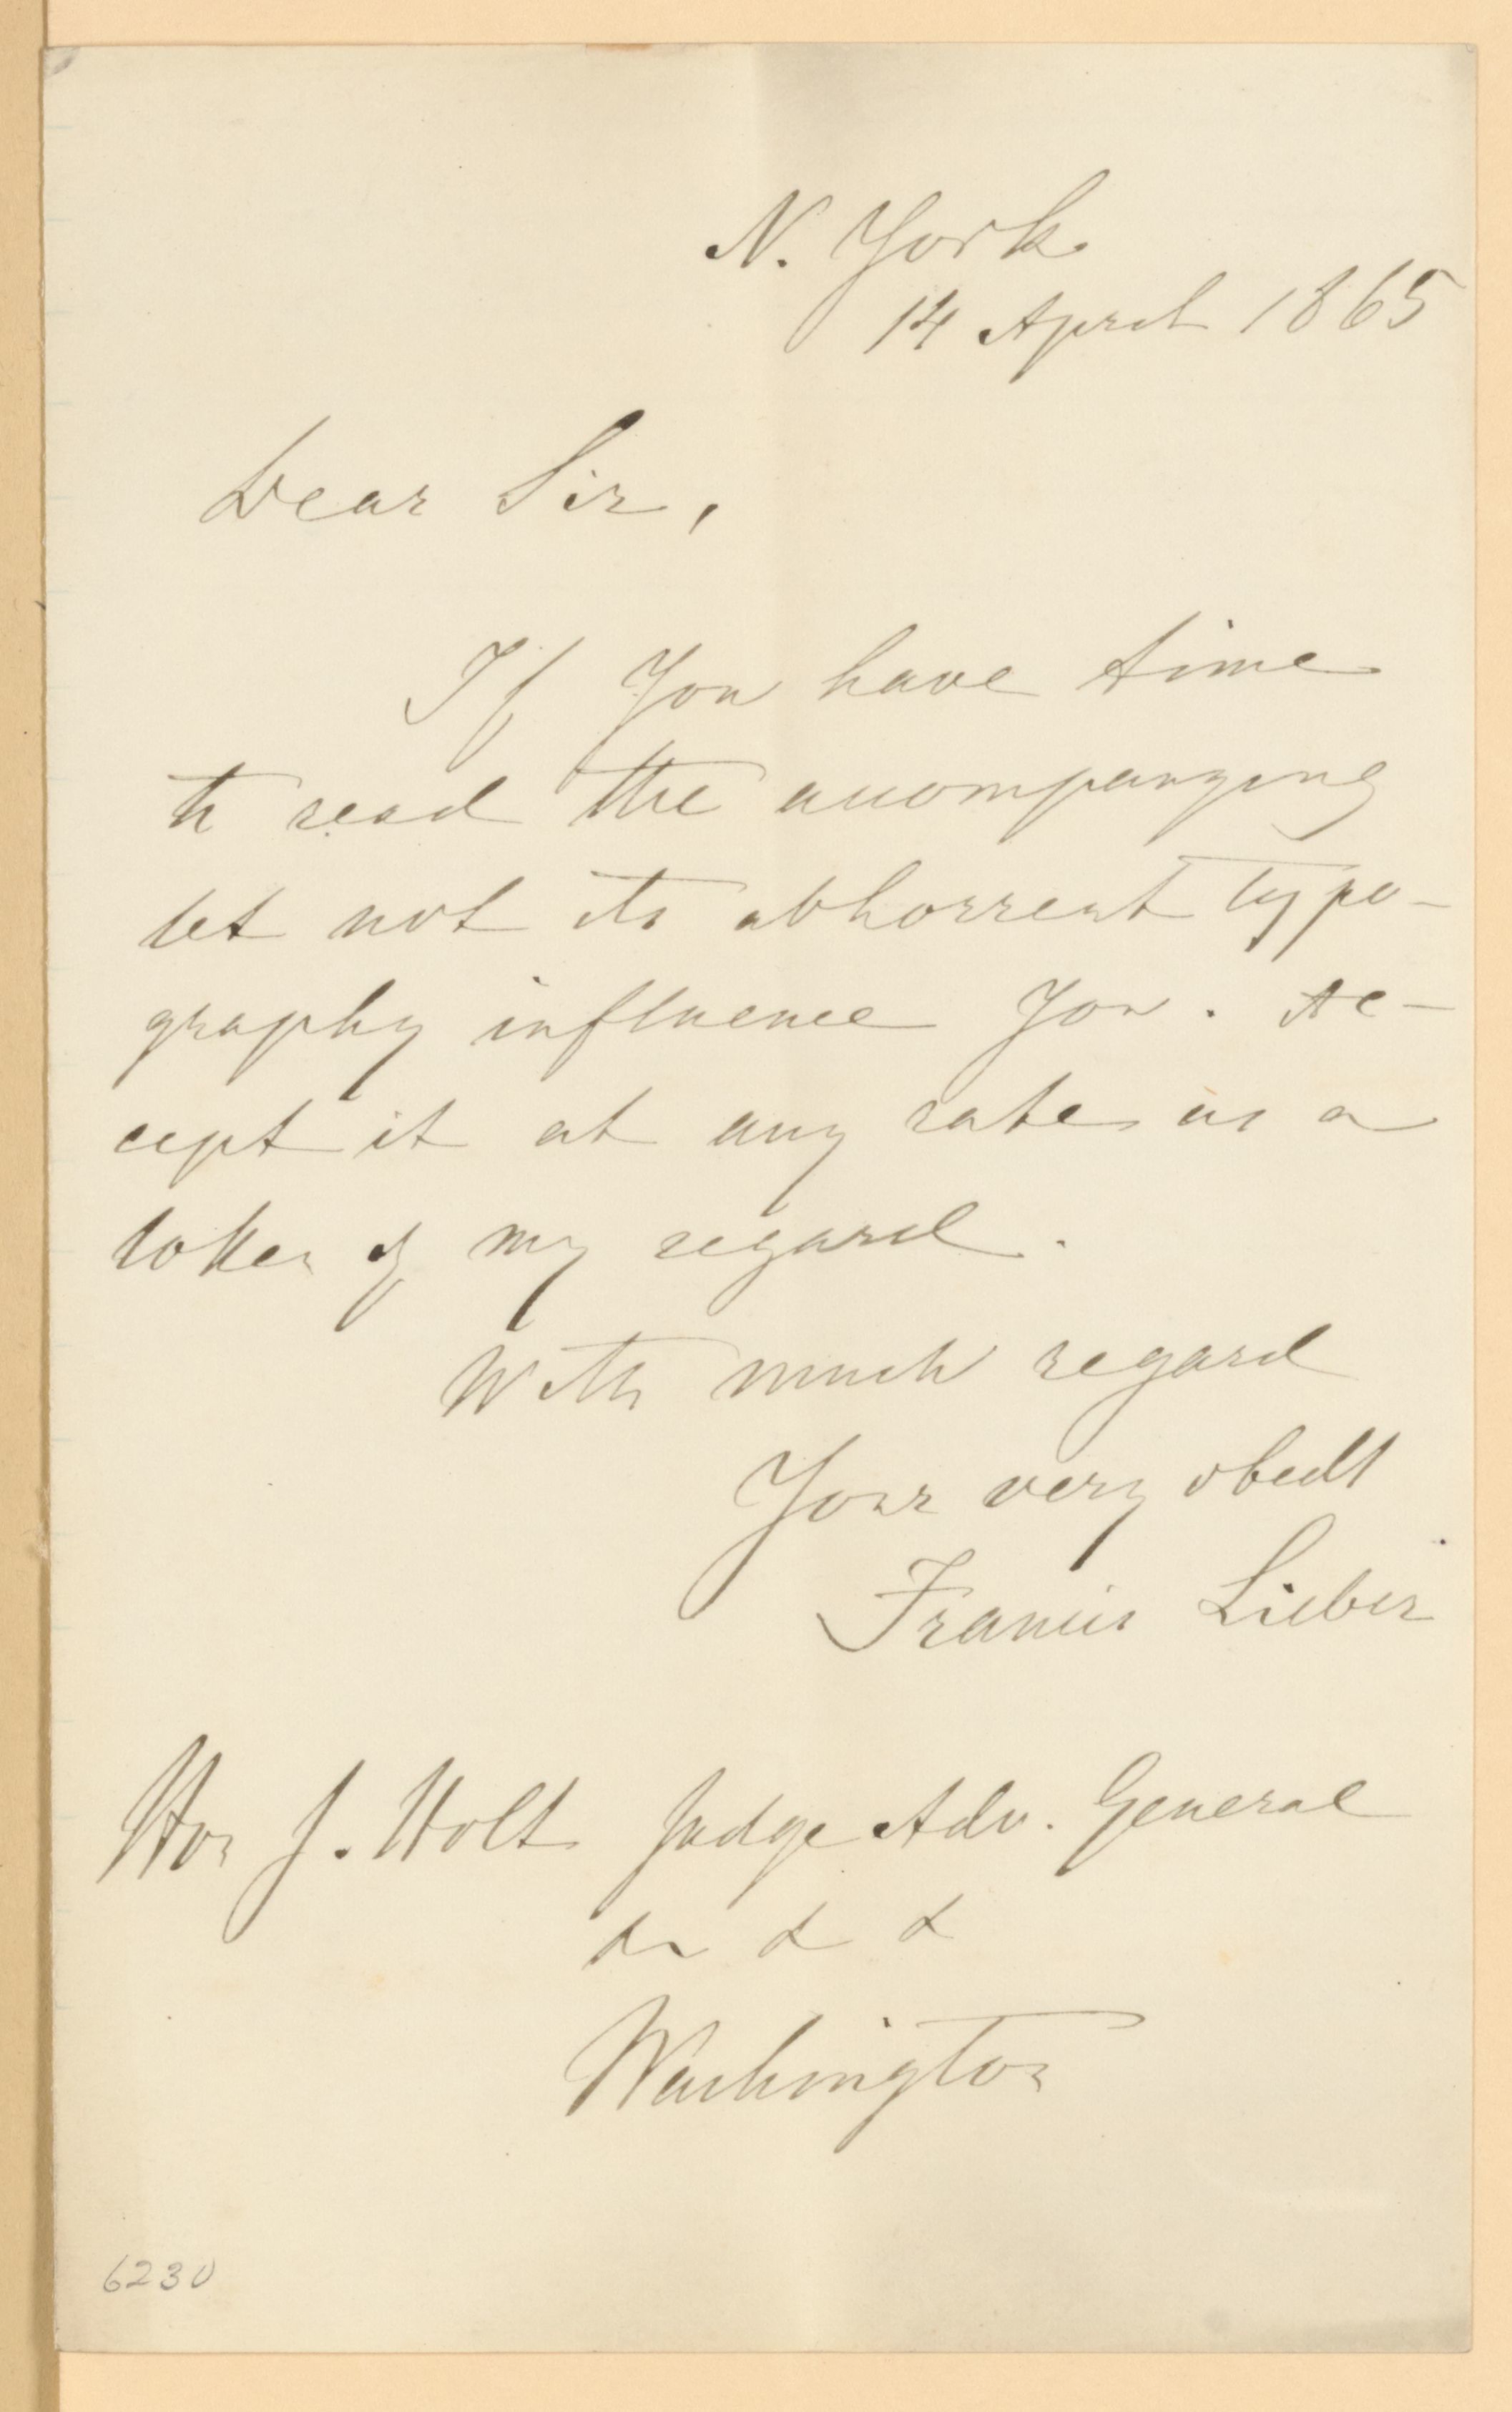 N. York
14 April 1865
Dear Sir,
If You have time
to read the accompanying
let not its abhorrent typo-
graphy influence You. Ac-
cept it at any rate as a
token of my regard.
With much regard
Your very obedt
Francis Lieber
Hon J. Holt Judge Adv. General
& & &
Washington
6230